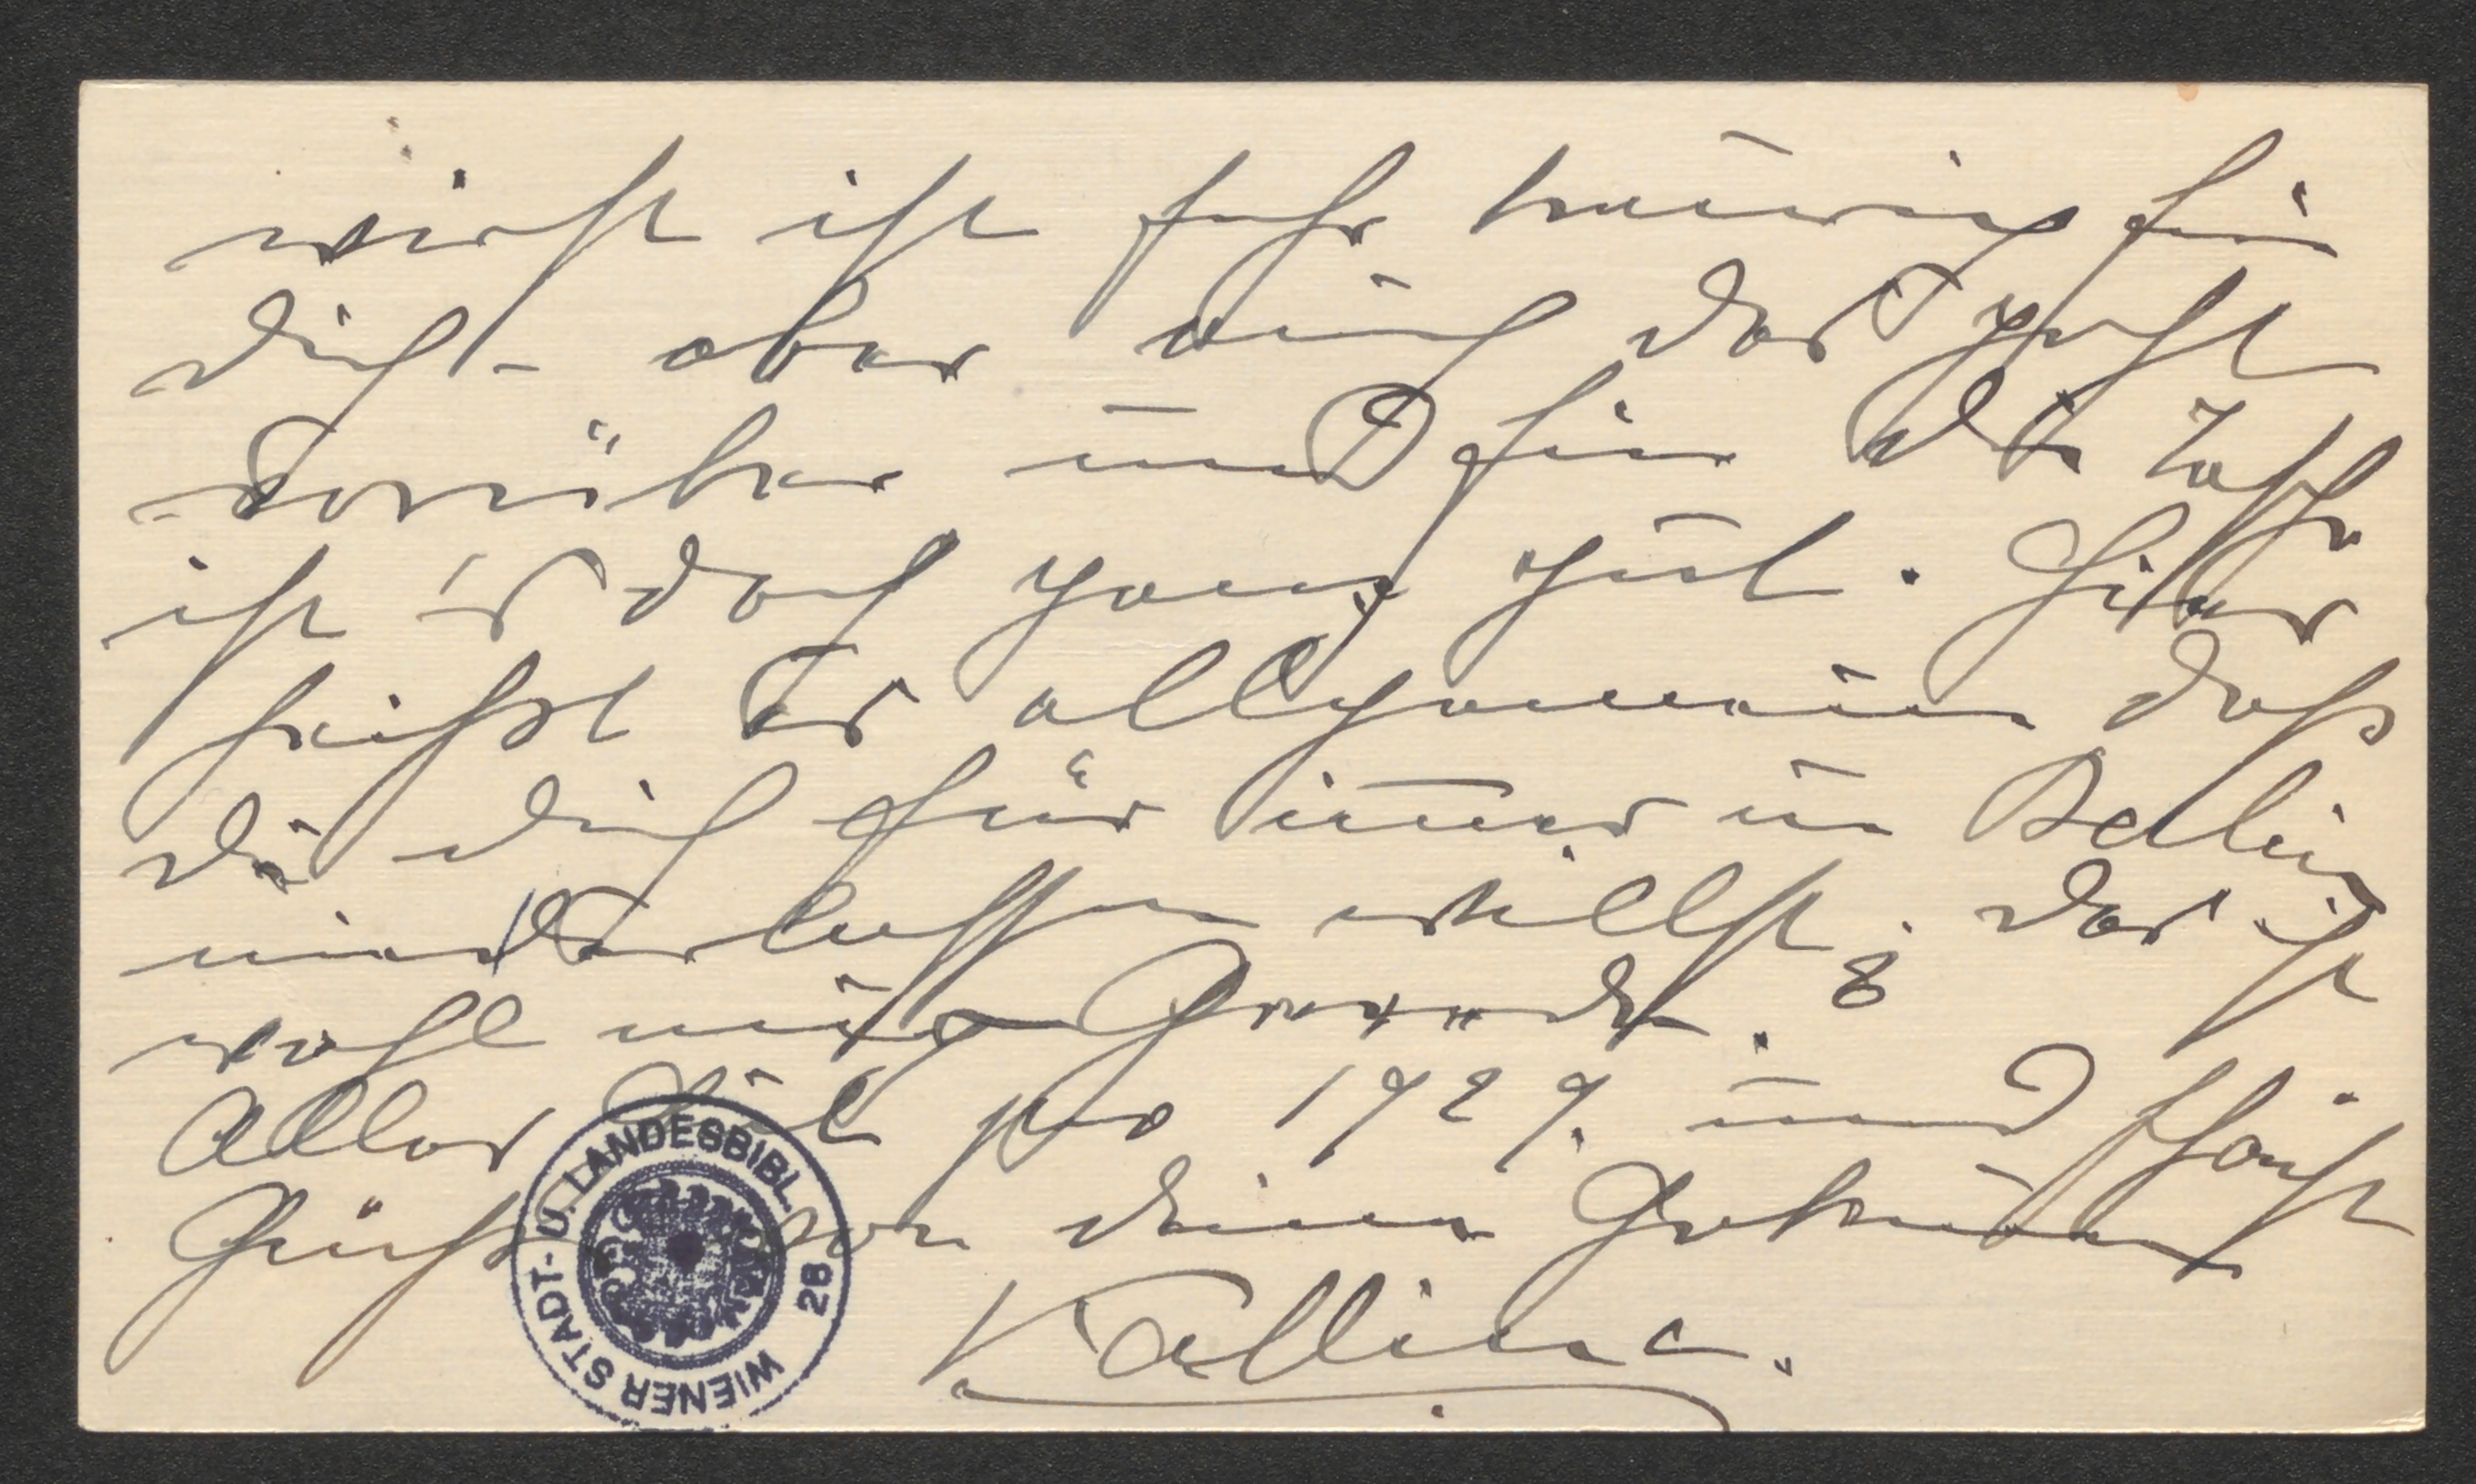 wirst ist sehr traurig für
Dich – aber auch das geht
vorüber und für die Tasche
ist es doch ganz gut. Hier
heisst es allgemein dass
Du Dich für immer in Berlin
niederlassen willst. Das ist
wohl nur Gerede. ?
Alles Gute pro 1929. und schönste
Grüsse von Deinem Getreuen
Kallina.
WIENER STADT- U. LANDESBIBL. 28